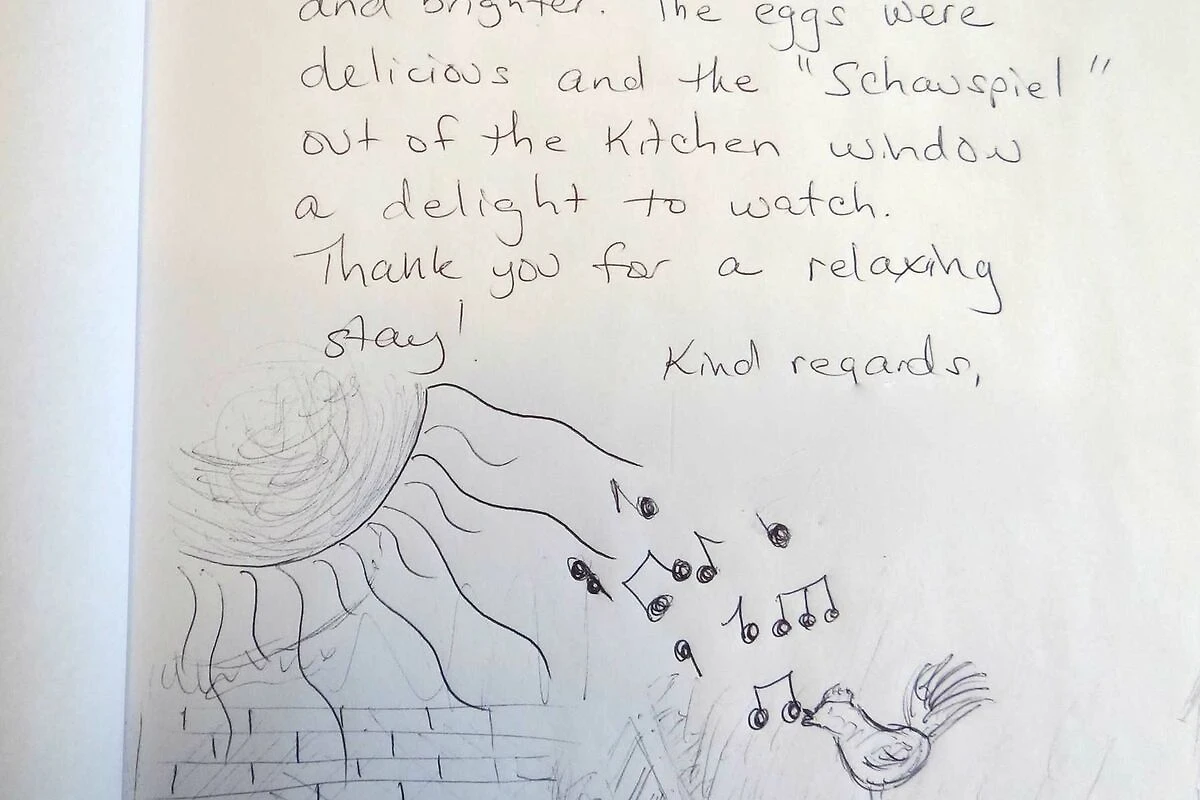 and brighter. The eggs were
delicious and the "Schauspiel"
out of the kitchen window
a delight to watch.
Thank you for a relaxing
stay!
Kind regards,